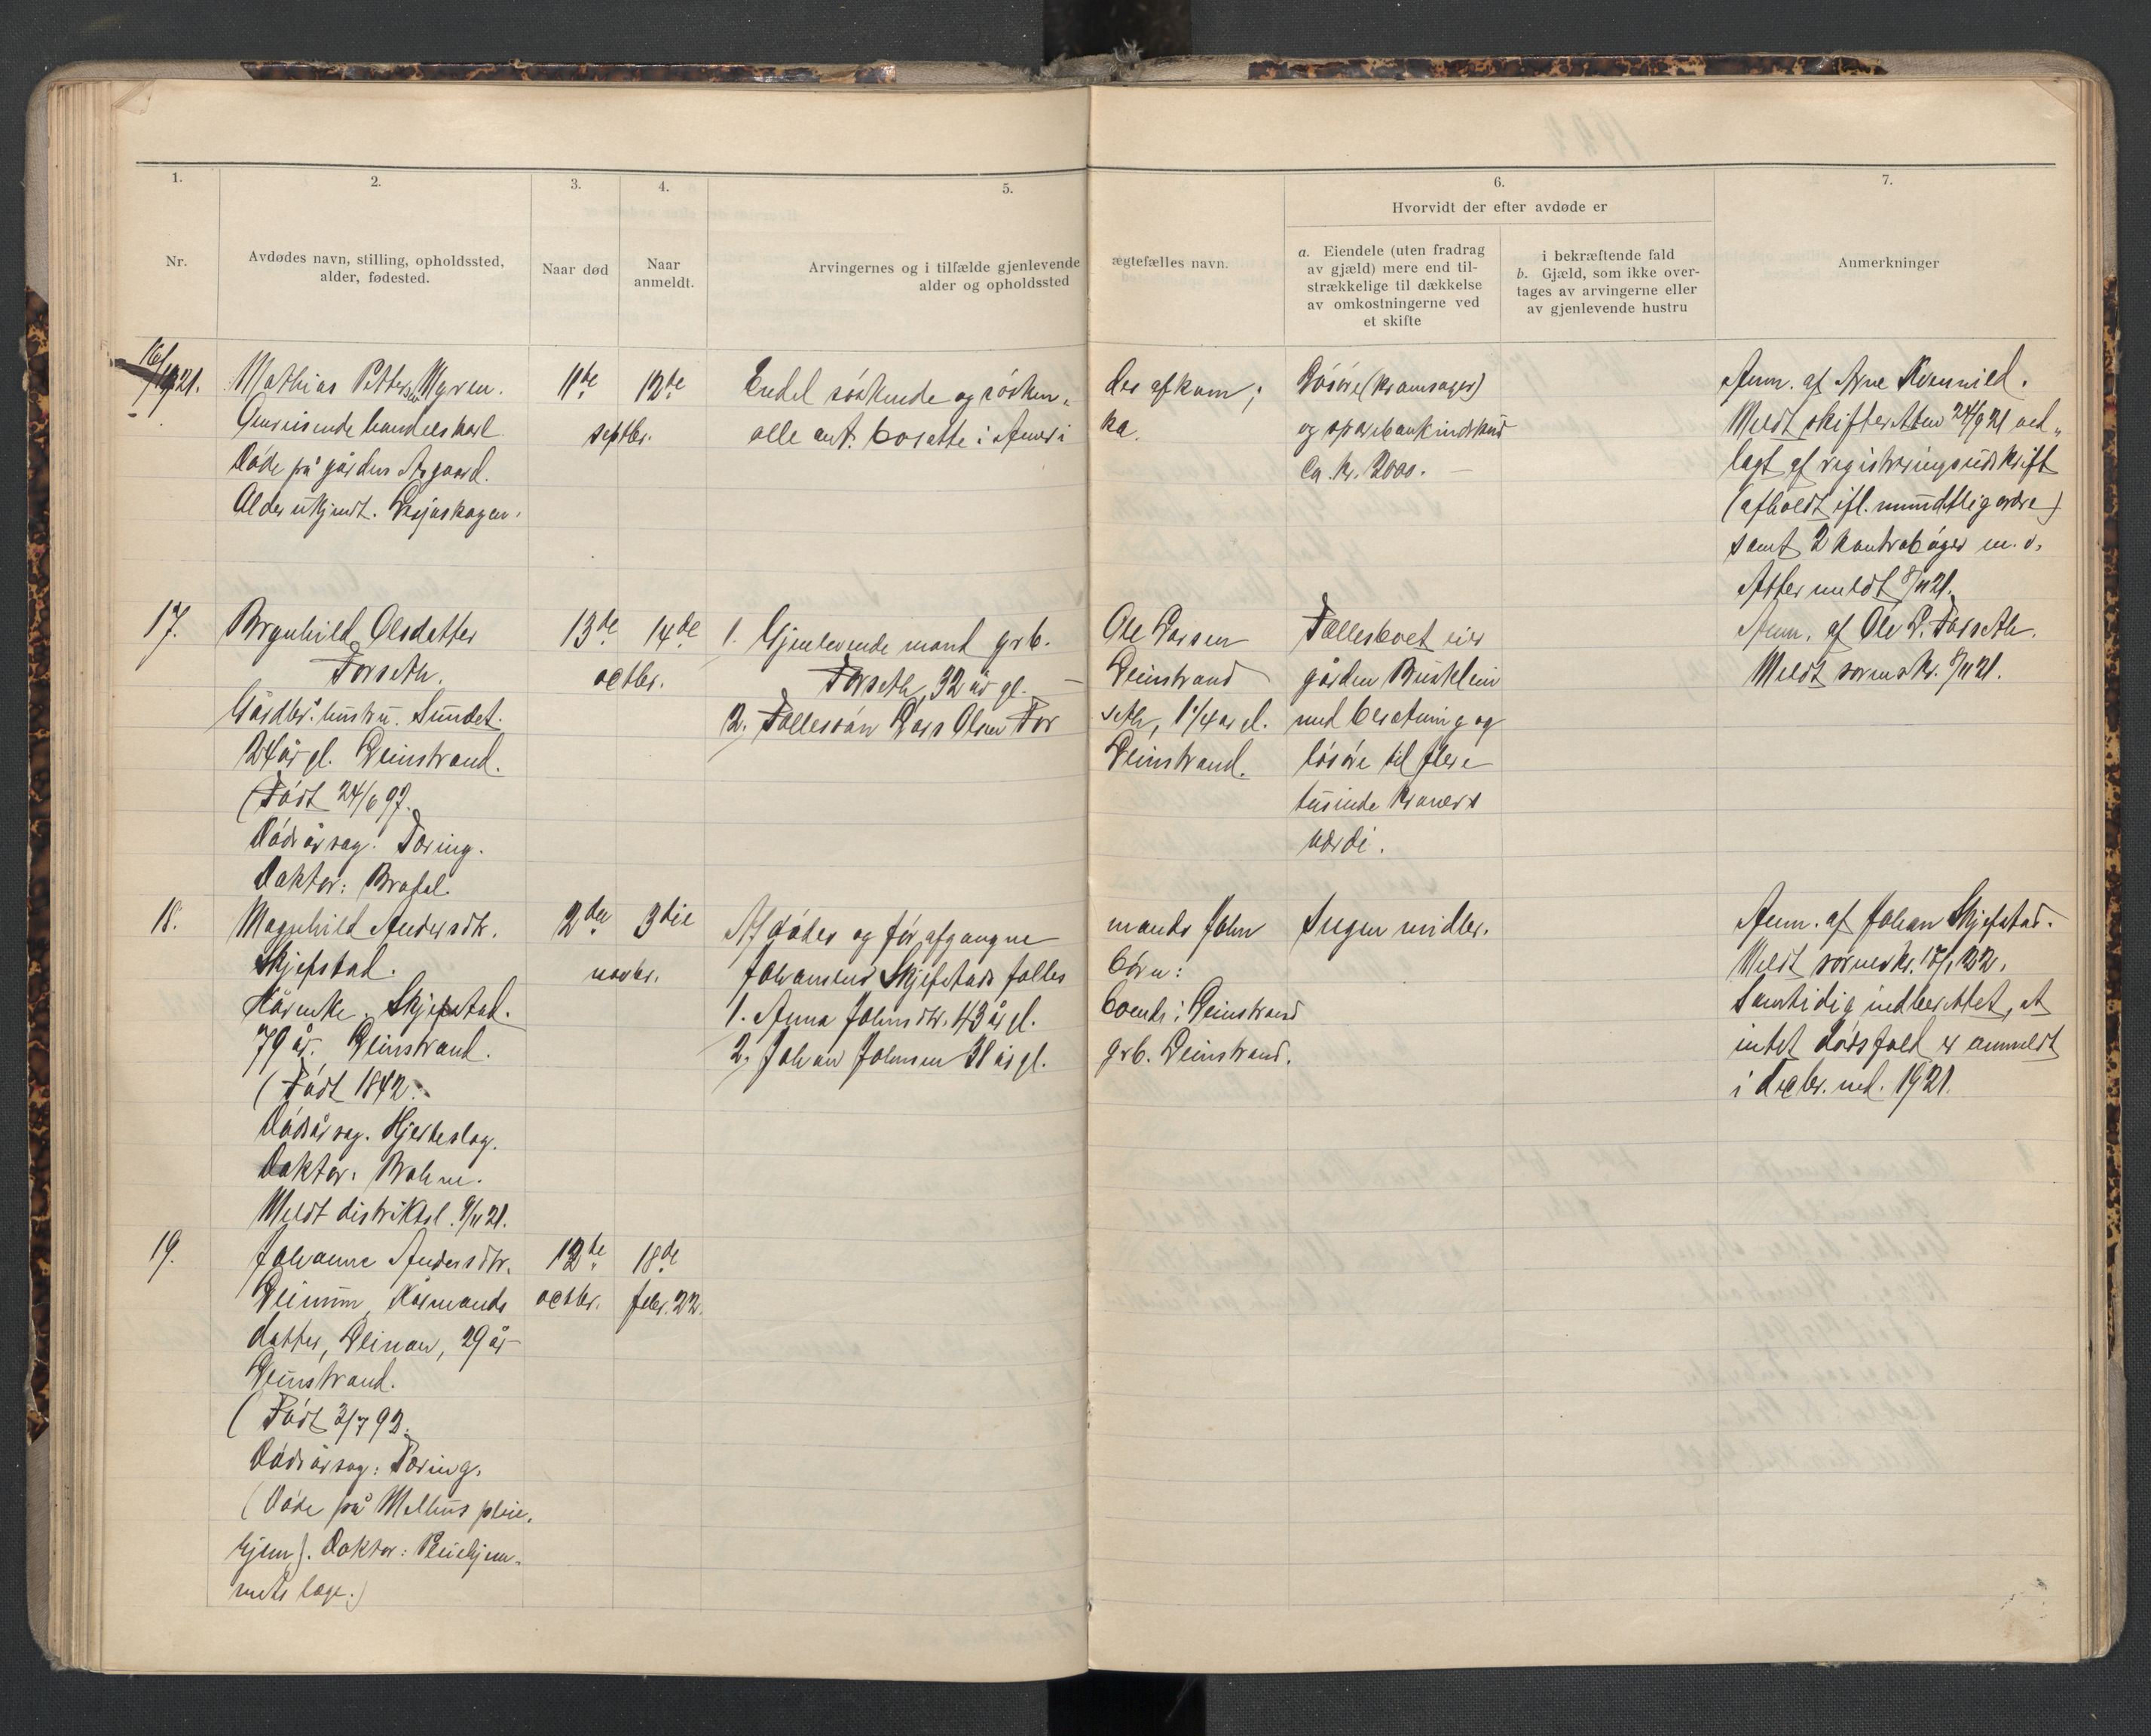 1.
2.
3.
4.
5.
6.
7.
Nr.
Avdødes navn, stilling, opholdssted,
alder, fødested.
Naar død
Naar
anmeldt.
Arvingernes og i tilfælde gjenlevende ægtefælles navn.
alder og opholdssted
Hvorvidt der efter avdøde er
a. Eiendele (uten fradrag
av gjæld) mere end til-
strækkelige til dækkelse
av omkostningerne ved
et skifte
i bekræftende fald
b. Gjæld, som ikke over-
tages av arvingerne eller
av gjenlevende hustru
Anmerkninger
16/1921.
Mathias Pettersen Myren.
Omreisende handelskarl.
Døde på gården Aagaard.
Alder ukjendt.
11te
12te
septbr.
Endel søskende og søsken-
des afkom;
alle ant. bosatte i Ameri
ka.
Løsøre (kramsager)
og sparebankindskud
ca. kr. 2000.
Anm. af Arne Kvernild.
Meldt skifteretten 24/9 21 ved-
lagt af registreringsudskrift
(afholdt ifl. mundtlig ordre)
samt 2 kontrabøger m. v.
Atter meldt 8/11 21.
17.
Brynhild Olsdatter
Forseth.
Gårdbr. hustru. Sundet.
24 år gl. Leinstrand.
(Født 24/6 97.
Dødsårsag: Tæring.
Doktor:
13de
14de
octbr.
1. Gjenlevende mand grb. Ole Larsen
Forseth, 32 år gl. – Leinstrand
2. Fællessøn Lars Olsen For
seth, 1 1/4 år gl.
Leinstrand.
Fællesboet eier
gården
med besætning og
løsøre til flere
tusinde kroners
værdi.
Anm. af Ole L. Forseth.
Meldt sorenskr. 8/11 21.
18.
Magnhild Andersdtr.
Skjefstad.
Kårenke. Skjefstad.
79 år. Leinstrand.
(Født 1842.
Dødsårsag. Hjerteslag.
Doktor:
Meldt distriktsl. 9/11 21.
2den
3die
novbr.
Afdødes og før afgangne mands John
Johansens Skjefstads fælles børn:
1. Anna Johnsdtr. 43 år gl. boende i Leinstrand
2. Johan Johnsen 38 år gl. grb. Leinstrand.
Ingen midler.
Anm. af Johan Skjefstad.
Meldt sorenskr. 17/1 22.
Samtidig indberettet, at
intet dødsfald er anmeldt
i decbr. md. 1921.
19.
Johanne Andersdtr.
Leinum, Kårmands
datter, Leinan, 29 år
Leinstrand.
(Født 3/7 92.
Dødsårsag: Tæring.
(Døde på Melhus pleie-
hjem). Doktor: Pleiehjem-
mets læge.)
12te
octbr.
18de
febr. 22.